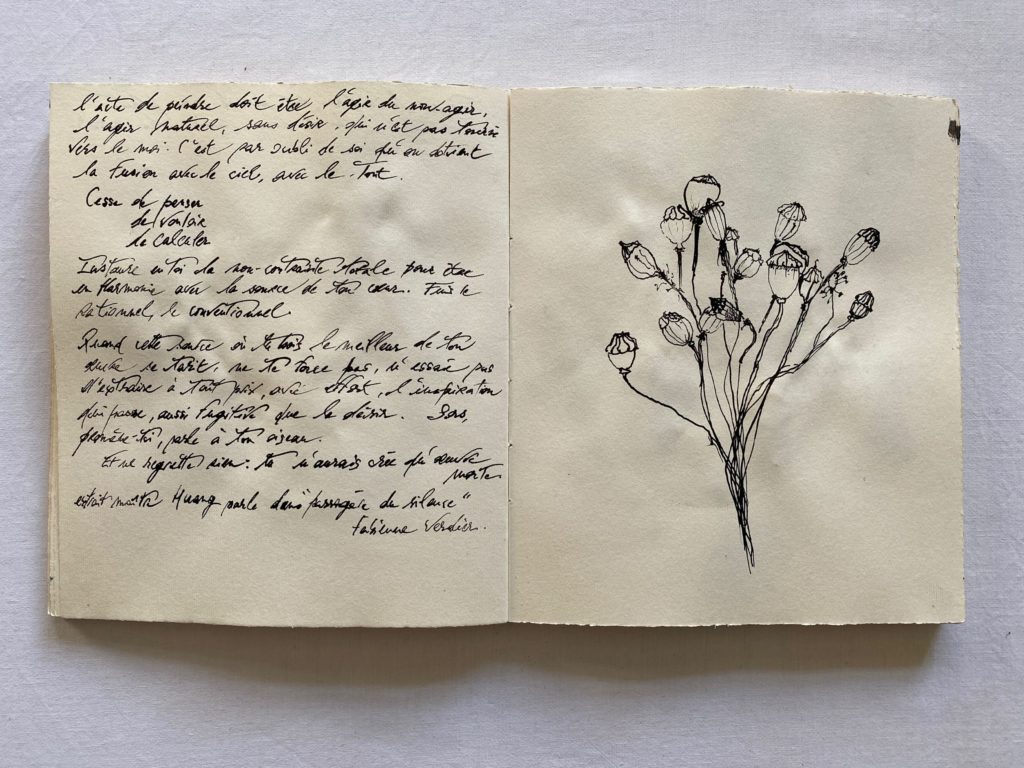 l'acte de peindre doit être l'agir du non-agir,
l'agir naturel, sans désir, qui n'est pas tourné
vers le moi. C'est par oubli de soi qu'on obtient
la fusion avec le ciel, avec le Tout.
Cesse de penser
de vouloir
de calculer
Instaure en toi la non-contrainte totale pour être
en Harmonie avec la source de ton cœur. Fuis le
rationnel, le conventionnel
Quand cette source où tu puis le meilleur de ton
œuvre se tarit, ne te force pas, n'essaie pas
d'extraire à tout prix, avec effort, l'inspiration
qui passe, aussi fugitive que le désir. Sors,
promène-toi, parle à ton oiseau.
Et ne regrette rien : tu n'aurais créé qu'œuvre
morte
extrait maître Huang parle dans "passagère du silence"
Fabienne Verdier.